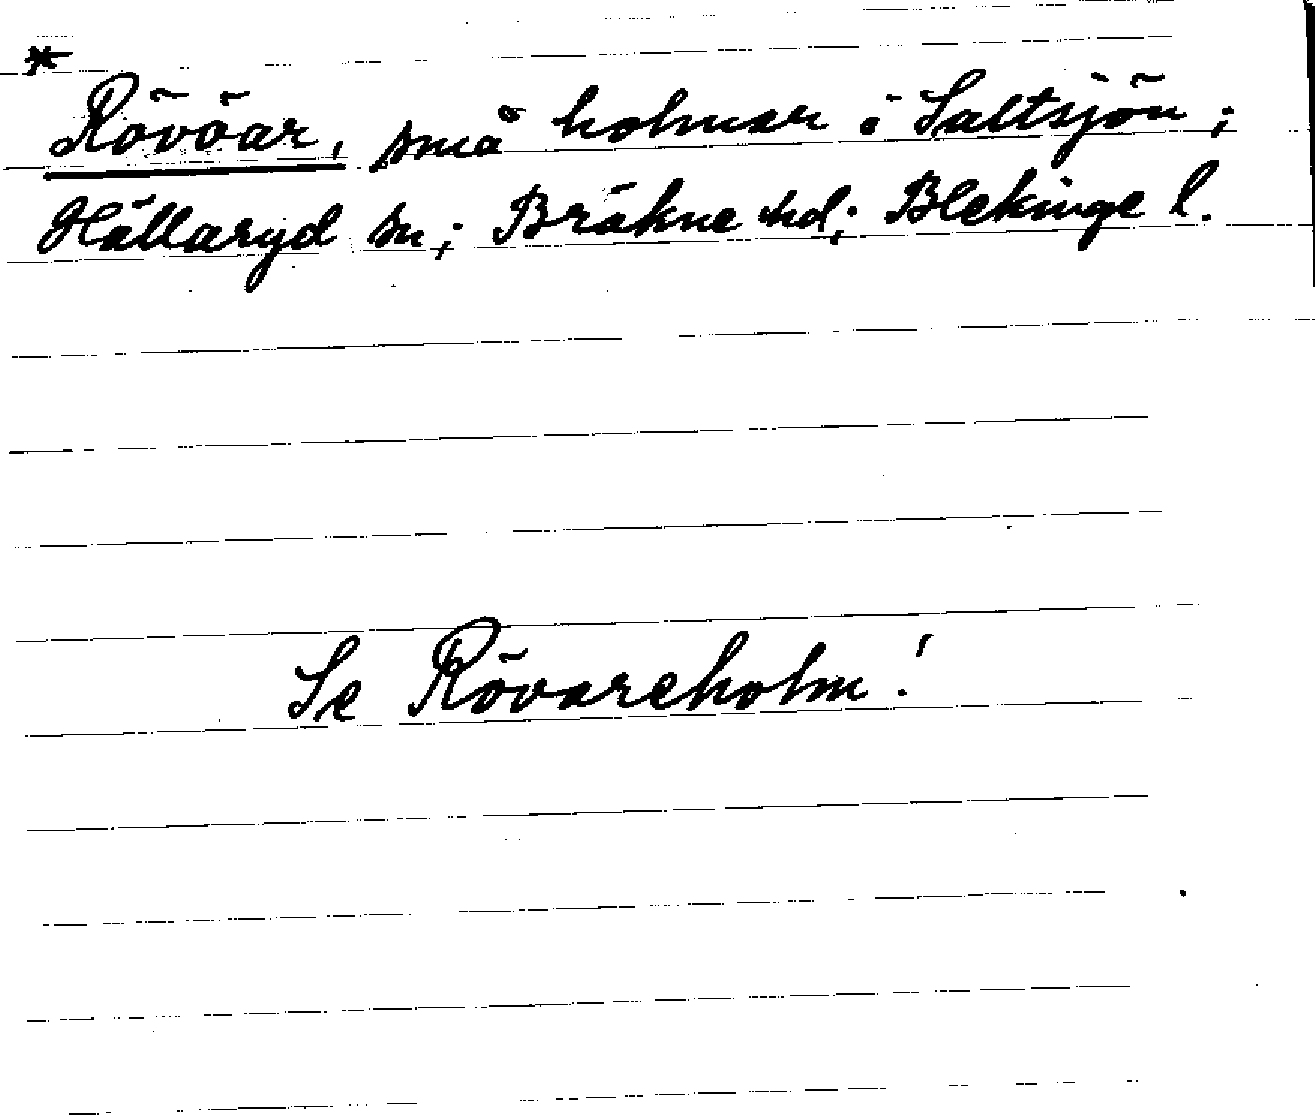 *
Rövöar, små holmar i Saltsjön;
Hällaryd sn; Bräkne hd; Blekinge l.
Se Rövareholm!